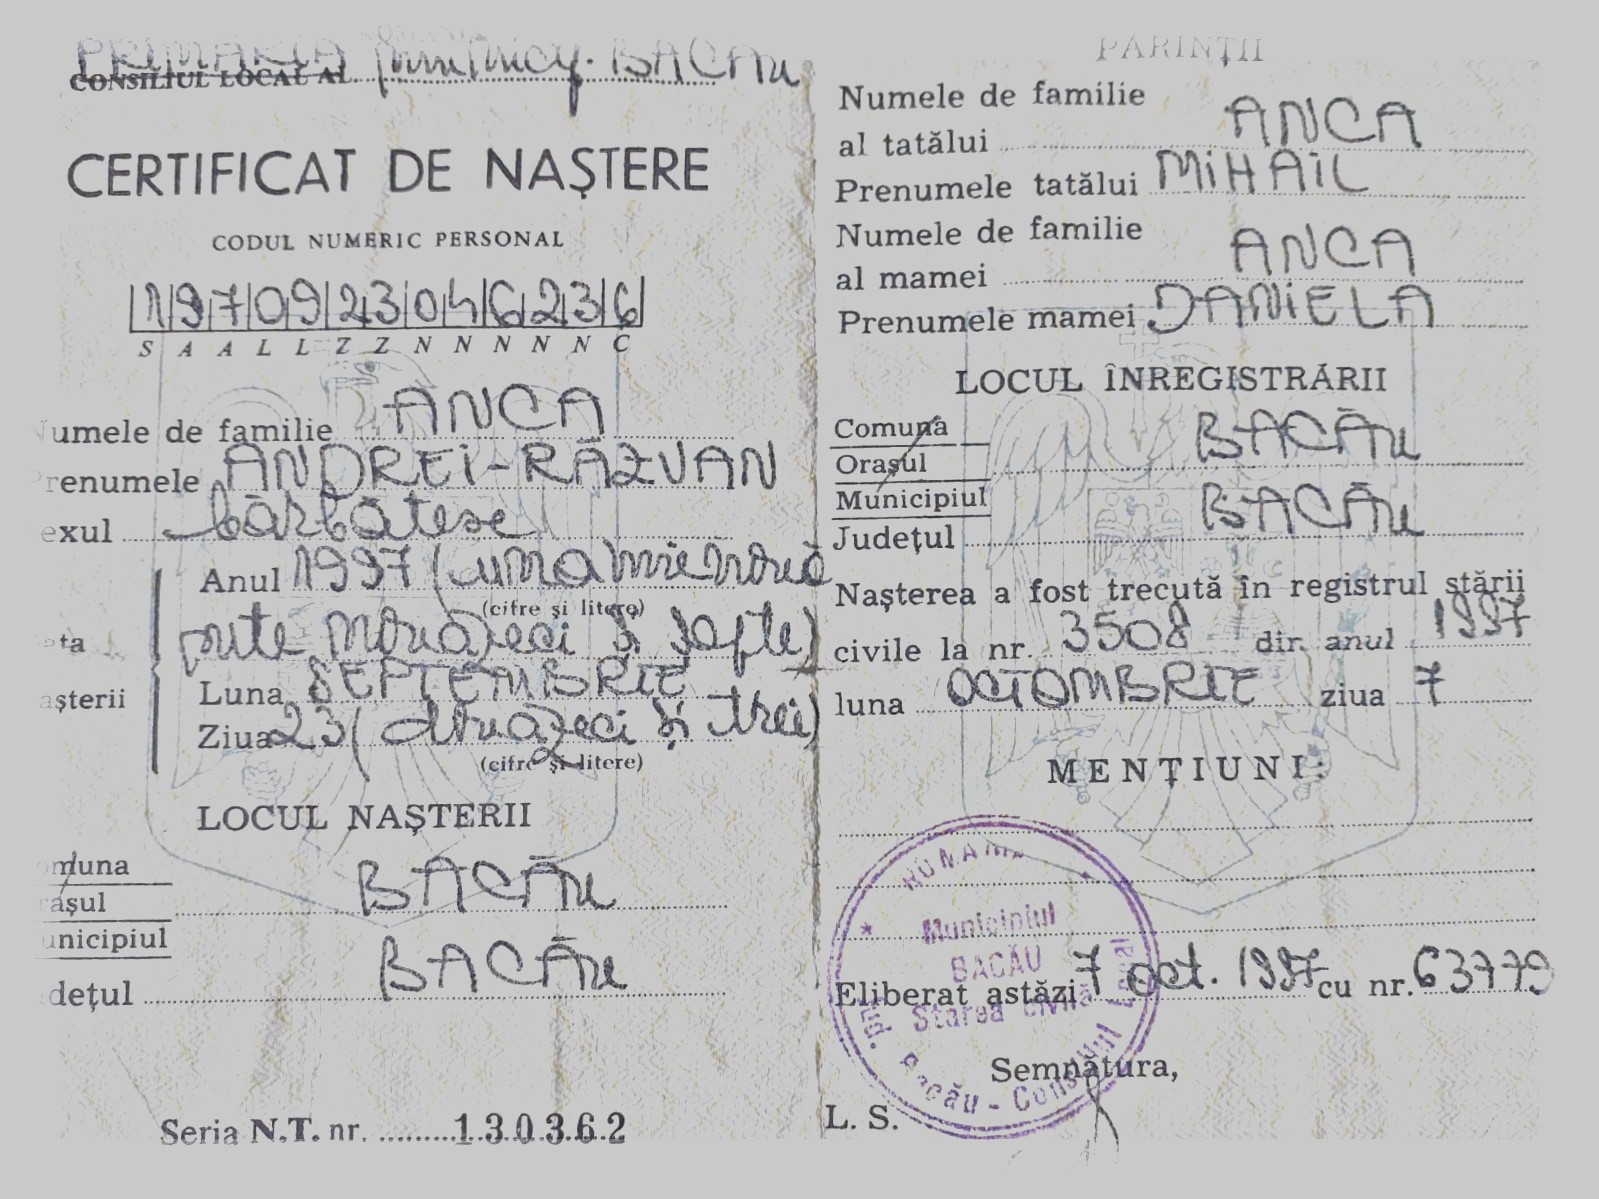 PRIMĂRIA municip. BACĂu
CONSILIUL LOCAL AL
CERTIFICAT DE NAȘTERE
CODUL NUMERIC PERSONAL
1 9 7 0 9 2 3 0 4 6 2 3 6
S A A L L Z Z N N N N N C
umele de familie ANCA
renumele ANDREI-RĂZVAN
exul bărbătesc
Anul 1997 (una mie nouă
(cifre și litere)
sute nouăzeci și șapte)
ta
așterii
Luna SEPTEMBRIE
Ziua 23 (douăzeci și trei)
(cifre și litere)
LOCUL NAȘTERII
omuna
rașul BACĂu
unicipiul
dețul BACĂu
Seria N.T. nr. 130362
PĂRINȚII
Numele de familie
al tatălui ANCA
Prenumele tatălui MiHAiL
Numele de familie
al mamei ANCA
Prenumele mamei DANiELA
LOCUL ÎNREGISTRĂRII
Comuna
Orașul BACĂu
Municipiul
Județul BACĂu
Nașterea a fost trecută în registrul stării
civile la nr. 3508 din anul 1997
luna OCTOMBRIE ziua 7
MENȚIUNI:
ROMÂNIA
Municipiul
BACĂU
Starea civilă
Jud. Bacău - Consiliul Local
Eliberat astăzi 7 oct. 1997 cu nr. 63779
Semnătura,
L. S.